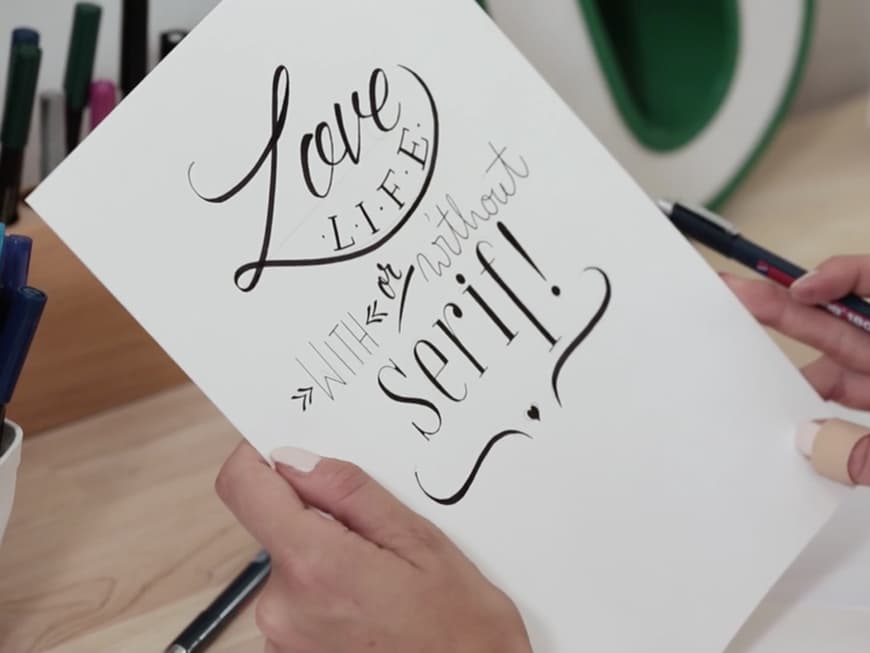 Love
·L·I·F·E·
»WITH« or without
serif!